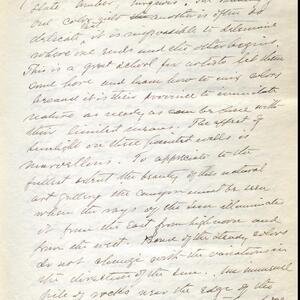 slate, amber,
one color into another is often so
delicate, it is impossible to determine
where one ends and the other begins.
This is a great school for artists let them
come here and learn how to mix colors
and it is their province to emulate
nature as nearly as can be done with
their limited means. The effect of
sunlight on these painted walls is
marvellous. To appreciate to the
fullest extent the beauty of this natural
art gallery the canyon must be seen
when the rays of the sun illuminate
it from the east from high noon and
from the west. Some of the steady colors
do not change with the variations in
the direction of the sun. One unusual
pile of rocks near the edge of the